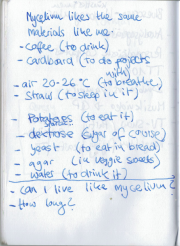 Mycelium likes the same
materials like me:
- coffee (to drink)
- cardboard (to do projects
with)
- air 20-26 °C (to breathe)
- straw (to sleep in it)
- Potatoes (to eat it)
- dextrose (sugar of course)
- yeast (to eat in bread)
- agar (in veggie sweets)
- water (to drink it)
- Can I live like mycelium?
- How long?